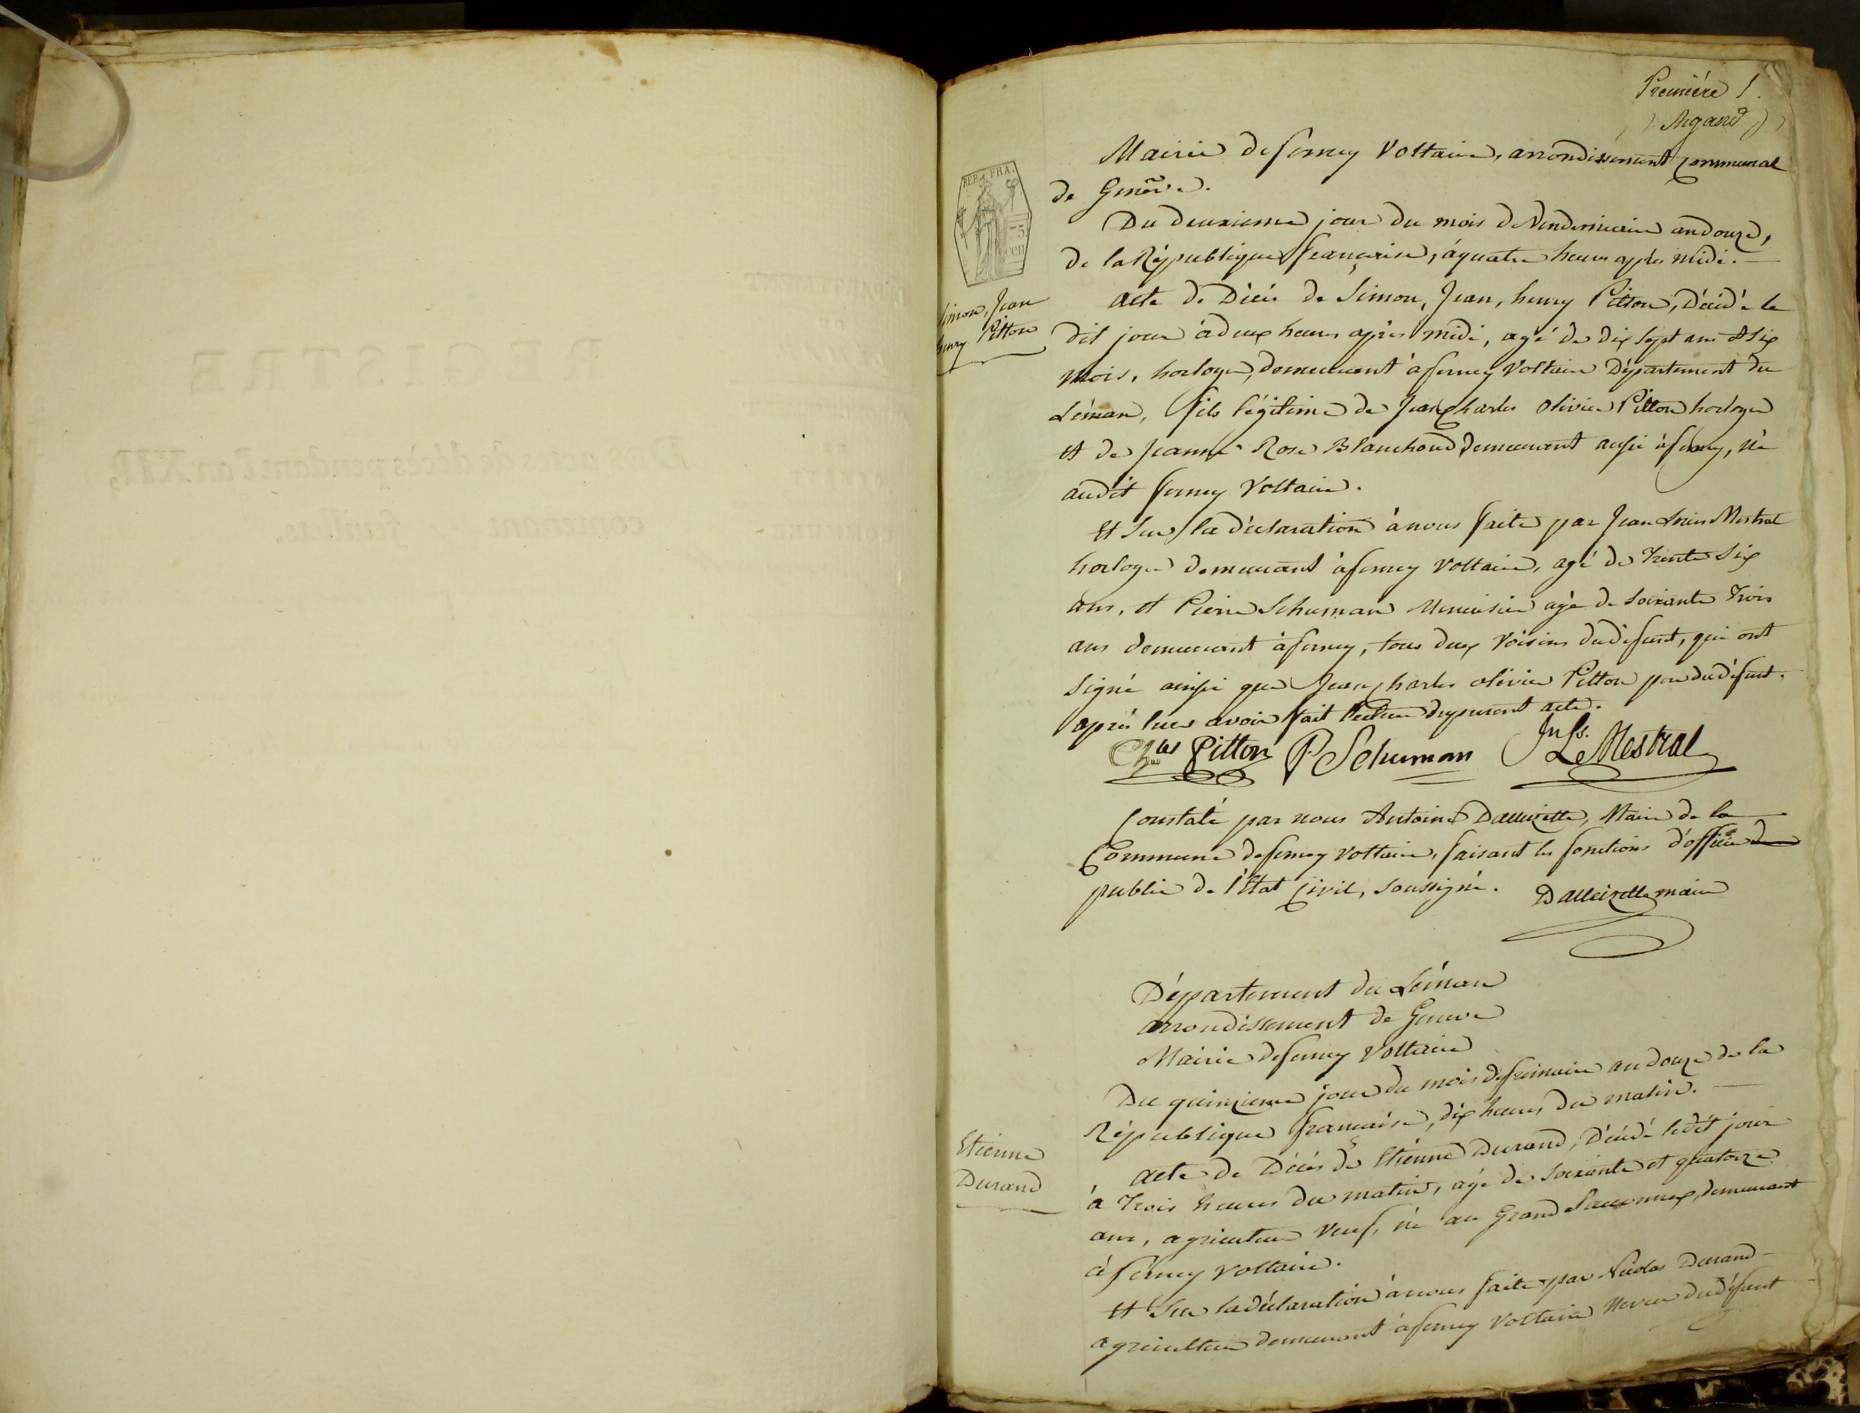 Première 1.
Argand
Mairie de ferney Voltaire, arrondissement communal
de Genêve.
REP. FRA.
Du deuxieme jour du mois de Vendemiaire an douze,
de la République française, à quatre heures après midi.
Simon, Jean
henry Pitton
acte de Décès de Simon, Jean, henry Pitton, Décédé le
dit jour à deux heures après midi, agé de dix sept ans & six
mois, horloger, demeurant à ferney Voltaire Département du
Léman, fils légitime de Jean Charles olivier Pitton horloger
et de Jeanne Rose Blanchoud demeurant aussi à ferney, né
audit ferney Voltaire.
Et Sur la déclaration à nous faite par Jean Louis Mestral
horloger demeurant à ferney Voltaire, agé de Trente Six
ans, et Pierre Schuman Menuisier agé de soixante Trois
ans demeurant à ferney, tous deux Voisins du défunt, qui ont
Signé ainsi que Jean Charles olivier Pitton père du défunt.
après leur avoir fait lecture du présent acte.
Chles Pitton P. Schuman Jn Ls. Mestral
Constaté par nous Antoine Dallizette, Maire de la
Commune de ferney Voltaire, faisant les fonctions d'officier
public de l'État Civil, soussigné. Dallizette maire
Département du Léman
arrondissement de Geneve
Mairie de ferney Voltaire
Du quinzieme jour du mois de frimaire an douze de la
République française, dix heures du matin.
Etienne
Durand
acte de Décès de Etienne Durand, Décédé ledit jour
à Trois heures du matin, agé de soixante et quatorze
ans, agriculteur Veuf, né au Grand Saconnex, demeurant
à ferney Voltaire.
Et Sur la déclaration à nous faite par Nicolas Durand
agriculteur demeurant à ferney Voltaire Neveu du défunt